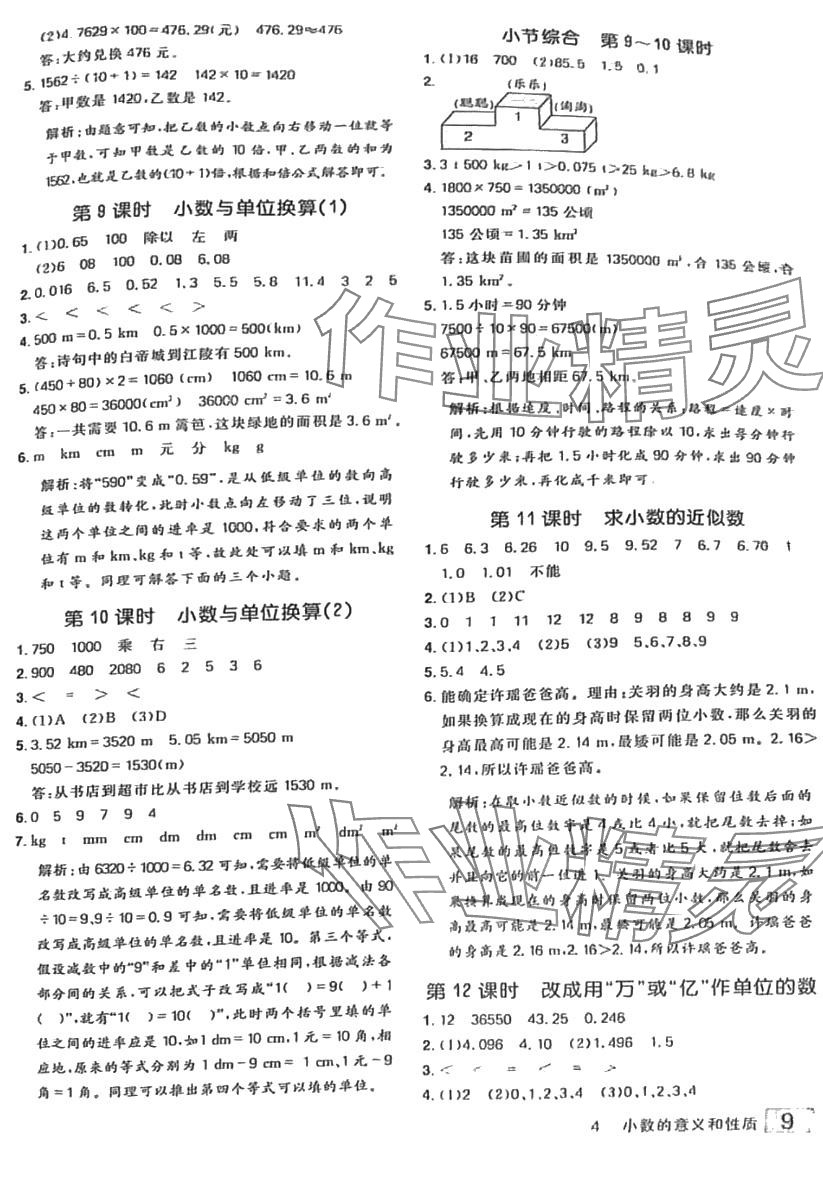 (2)4.7629×100=476.29(元)　476.29≈476
答:大约兑换 476 元。
5.1562÷(10+1)=142　142×10=1420
答:甲数是 1420,乙数是 142。
解析:由题意可知,把乙数的小数点向右移动一位就等
于甲数,可知甲数是乙数的 10 倍,甲、乙两数的和为
1562,也就是乙数的(10+1)倍,根据和倍公式解答即可。
第 9 课时　小数与单位换算(1)
1.(1)0.65　100　除以　左　两
(2)6　08　100　0.08　6.08
2.0.016　6.5　0.52　1.3　5.5　5.8　11.4　3　2　5
3.<　<　<　<　<　>
4.500 m=0.5 km　0.5×1000=500(km)
答:诗句中的白帝城到江陵有 500 km。
5.(450+80)×2=1060 (cm)　1060 cm=10.6 m
450×80=36000(cm²)　36000 cm²=3.6 m²
答:一共需要 10.6 m 篱笆,这块绿地的面积是 3.6 m²。
6.m　km　cm　m　元　分　kg　g
解析:将“590”变成“0.59”,是从低级单位的数向高
级单位的数转化,此时小数点向左移动了三位,说明
这两个单位之间的进率是 1000,符合要求的两个单
位有 m 和 km、kg 和 t 等,故此处可以填 m 和 km、kg
和 t 等。同理可解答下面的三个小题。
第 10 课时　小数与单位换算(2)
1.750　1000　乘　右　三
2.900　480　2080　6　2　5　3　6
3.<　=　>　<
4.(1)A　(2)B　(3)D
5.3.52 km=3520 m　5.05 km=5050 m
5050-3520=1530(m)
答:从书店到超市比从书店到学校远 1530 m。
6.0　5　9　7　9　4
7.kg　t　m　cm　dm　dm　cm　cm　m²　dm²　m²
解析:由 6320÷1000=6.32 可知,需要将低级单位的单
名数改写成高级单位的单名数,且进率是 1000。由 90
÷10=9,9÷10=0.9 可知,需要将低级单位的单名数
改写成高级单位的单名数,且进率是 10。第三个等式,
假设减数中的“9”和差中的“1”单位相同,根据减法各
部分间的关系,可以把式子改写成“1(　)=9(　)+1
(　)”,就有“1(　)=10(　)”,此时两个括号里填的单
位之间的进率应是 10,如以 1 dm=10 cm,1 元=10 角,相
应地,原来的等式分别为 1 dm-9 cm=1 cm,1 元-9
角=1 角。同理可以推出第四个等式可以填的单位。
小节综合　第 9～10 课时
1.(1)16　700　(2)85.5　1.5　0.1
2.
(聪聪)　(乐乐)　(淘淘)
2　1　3
3.3 t 500 kg>1 t>0.075 t>25 kg>6.8 kg
4.1800×750=1350000(m²)
1350000 m²=135 公顷
135 公顷=1.35 km²
答:这块苗圃的面积是 1350000 m²,合 135 公顷,合
1.35 km²。
5.1.5 小时=90 分钟
7500÷10×90=67500(m)
67500 m=67.5 km
答:甲、乙两地相距 67.5 km。
解析:根据速度、时间、路程的关系:路程=速度×时
间,先用 10 分钟行驶的路程除以 10,求出每分钟行
驶多少米;再把 1.5 小时化成 90 分钟,求出 90 分钟
行驶多少米,最后化成千米即可。
第 11 课时　求小数的近似数
1.6　6.3　6.26　10　9.5　9.52　7　6.7　6.70　1
1.0　1.01　不能
2.(1)B　(2)C
3.0　1　1　11　12　12　8　9　8　8　9　9
4.(1)1、2、3、4　(2)5　(3)9　5、6、7、8、9
5.5.4　4.5
6.能确定许瑶爸爸高。理由:关羽的身高大约是 2.1 m,
如果换算成现在的身高时保留两位小数,那么关羽的
身高最高可能是 2.14 m,最矮可能是 2.05 m。2.16>
2.14,所以许瑶爸爸高。
解析:在取小数近似数的时候,如果保留位数后面的
尾数的最高位数字是 4 或比 4 小,就把尾数去掉;如
果尾数的最高位数字是 5 或者比 5 大,就把尾数舍去
并且向它的前一位进 1。关羽的身高大约是 2.1 m,如
果换算成现在的身高时保留两位小数,那么关羽的身
高最高可能是 2.14 m,最矮可能是 2.05 m。许瑶爸爸
的身高是 2.16 m,2.16>2.14,所以许瑶爸爸高。
第 12 课时　改成用“万”或“亿”作单位的数
1.12　36550　43.25　0.246
2.(1)4.096　4.10　(2)1.496　1.5
3.<　<　=　<　<　>
4.(1)2　(2)0、1、2、3、4　(3)0、1、2、3、4
4　小数的意义和性质　9
作业精灵
作业精灵